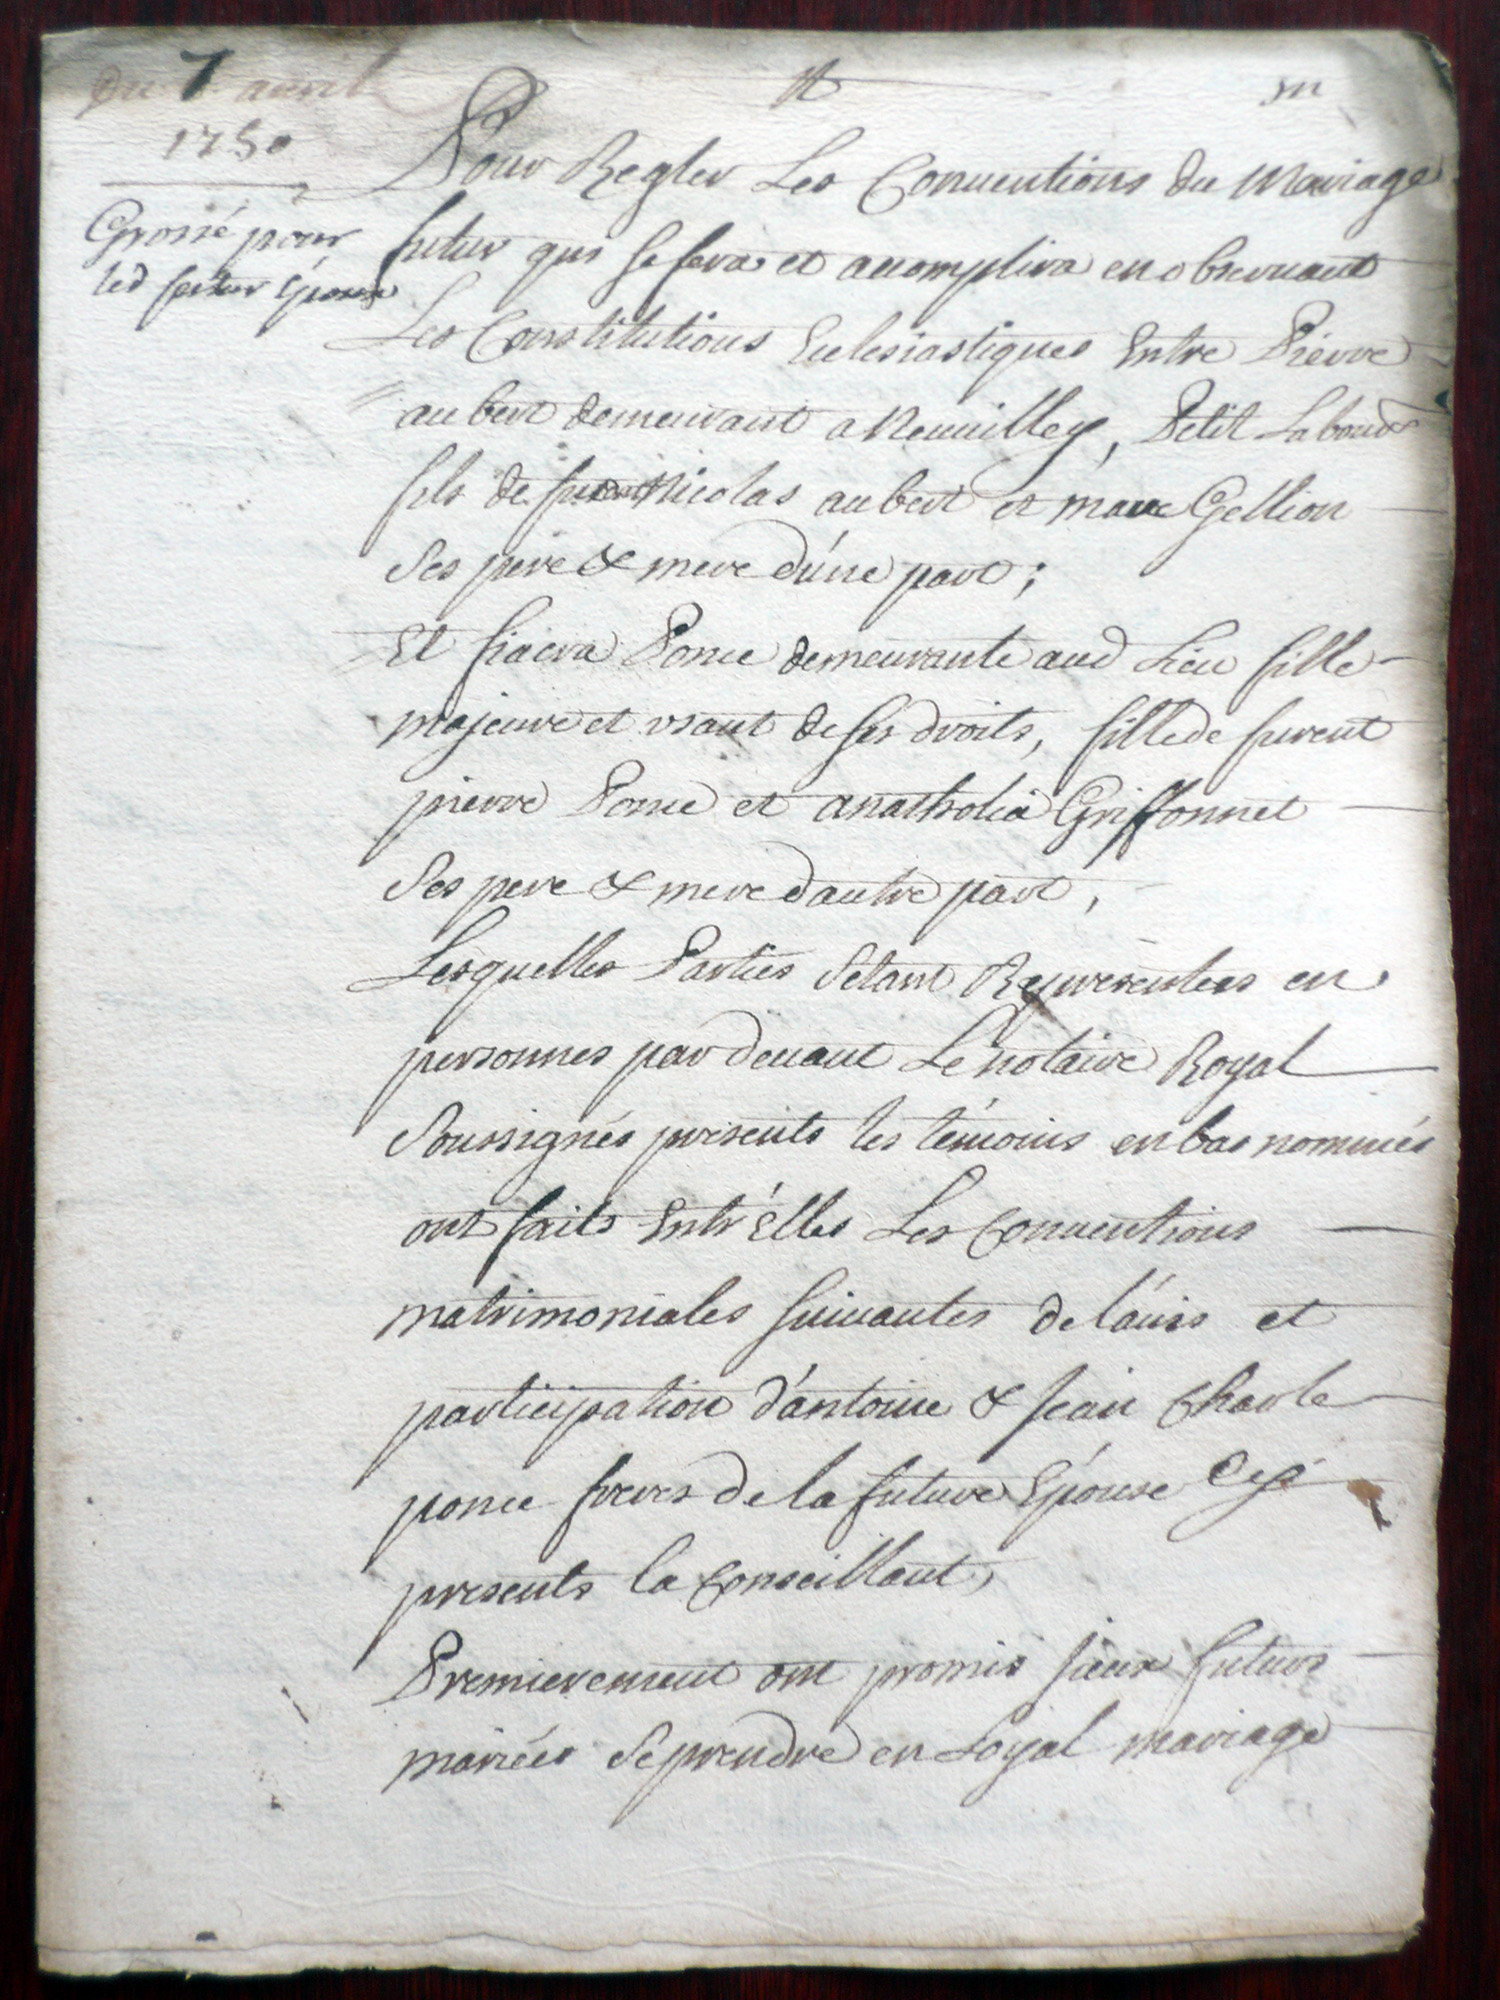 Du 7 avril
1750
Grossé pour
led futur Epoux
Pour Regler Les Conuentions du Mariage
futur qui se fera et acomplira en obseruant
Les Constitutions Eclesiastiques Entre Pierre
aubert demeurant a Neuuilley, Petit Laboudr
fils de Nicolas aubert et Gellion
Ses pere & mere d'une part;
Et fiacra Ponce demeurante aud Lieu fille
majeure et usant de ses droits, fille de furent
pierre Ponce et anatholia Griffonnet
Ses pere & mere d'autre part,
Lesquelles Parties S'etant Representees en
personnes par deuant Le notaire Royal
Soussignés présents les témoins en bas nommés
ont faits Entr'Elles Les Conuentions
matrimoniales suiuantes de l'auis et
participation d'antoine & Jean Charle
ponce freres de la future Epouse Cy
presents la Conseillant,
Premierement ont promis Iceux futurs
mariées Se prendre en Loyal mariage